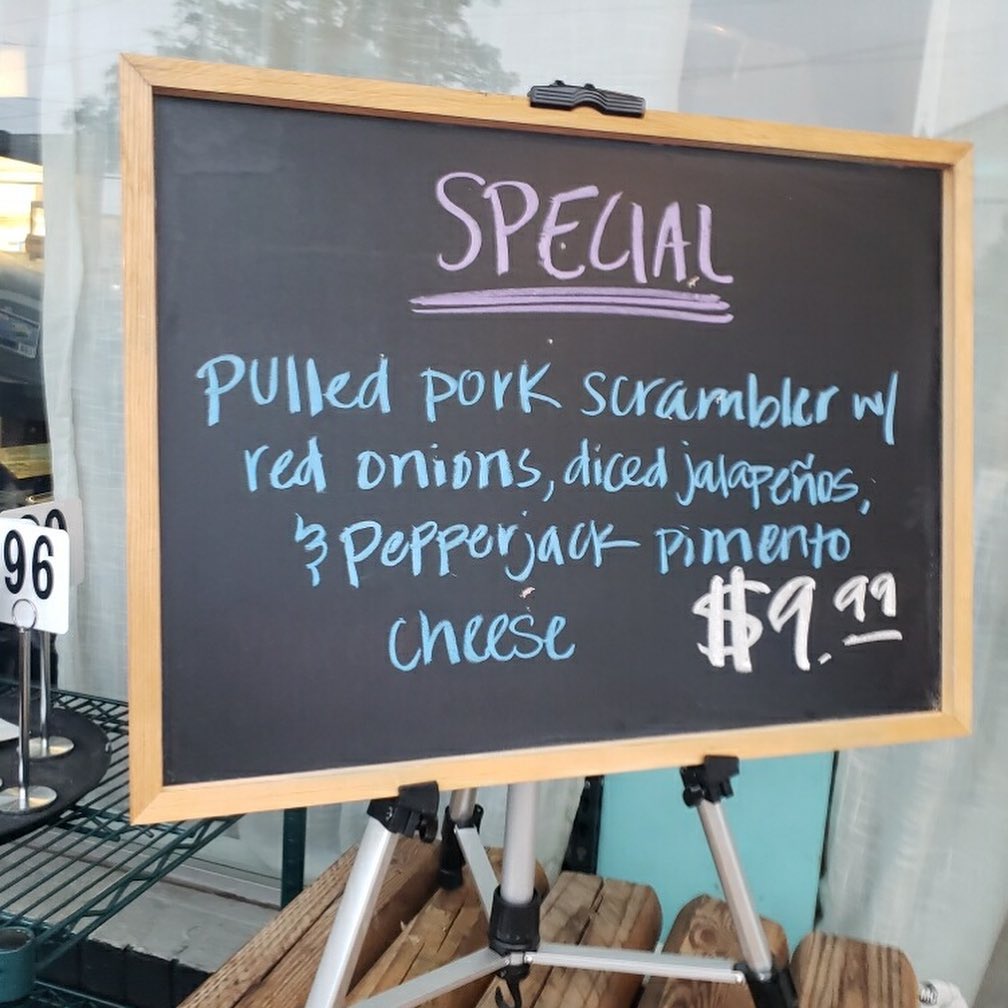 SPECIAL
Pulled pork scrambler w/
red onions, diced jalapeños,
& pepperjack pimento
cheese $9.99
96